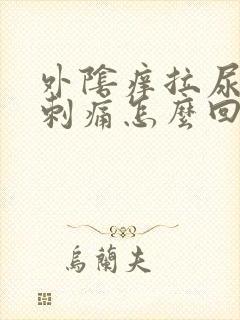 外陰痒拉尿
刺痛怎麼回
烏蘭夫